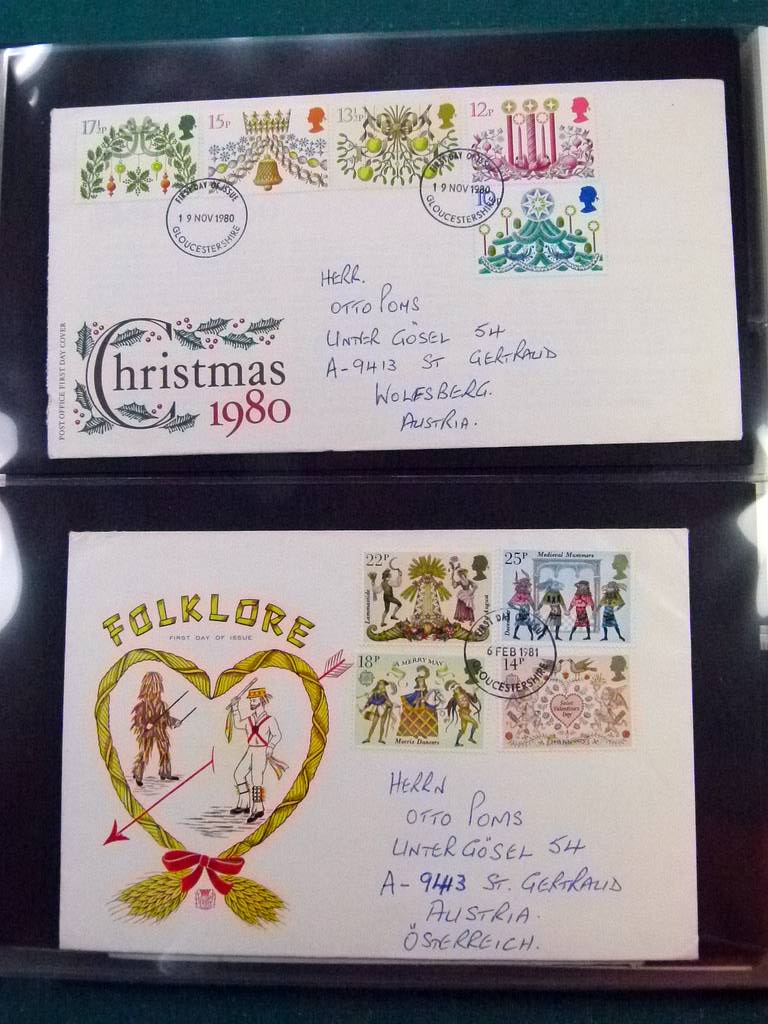 17½P
15P
13½P
12P
10P
FIRST DAY OF ISSUE
19 NOV 1980
GLOUCESTERSHIRE
FIRST DAY OF ISSUE
19 NOV 1980
GLOUCESTERSHIRE
HERR.
OTTO POMS
UNTER GÖSEL 54
A-9413 ST GERTRAUD
WOLFSBERG.
AUSTRIA.
POST OFFICE FIRST DAY COVER
Christmas
1980
22P
Lammastide
August
25P
Medieval Mummers
FIRST DAY OF ISSUE
6 FEB 1981
GLOUCESTERSHIRE
18P
A MERRY MAY
Morris Dancers
14P
Saint
Valentine's
Day
FOLKLORE
FIRST DAY OF ISSUE
HERRN
OTTO POMS
UNTER GÖSEL 54
A-9413 ST. GERTRAUD
AUSTRIA.
ÖSTERREICH.